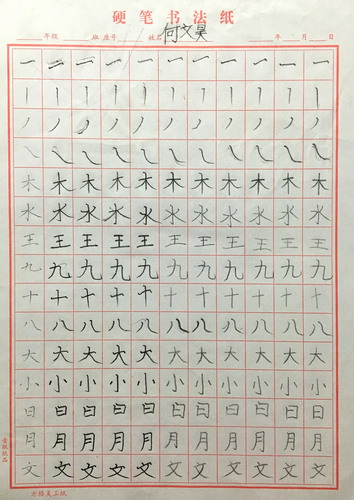 硬笔书法纸
年级 班 座号 姓名 何文昊 年 月 日
一 一 一 一 一 一 一 一 一 一 一
丨 丨 丨 丨 丨 丨 丨 丨 丨 丨 丨
丿 丿 丿 丿 丿 丿 丿 丿 丿 丿 丿
㇏ ㇏ ㇏ ㇏ ㇏ ㇏ ㇏ ㇏ ㇏ ㇏ ㇏
木 木 木 木 木 木 木 木 木 木 木
水 水 水 水 水 水 水 水 水 水 水
王 王 王 王 王 王 王 王 王 王 王
九 九 九 九 九 九 九 九 九 九 九
十 十 十 十 十 十 十 十 十 十 十
八 八 八 八 八 八 八 八 八 八 八
大 大 大 大 大 大 大 大 大 大 大
小 小 小 小 小 小 小 小 小 小 小
日 日 日 日 日 日 日 日 日 日 日
月 月 月 月 月 月 月 月 月 月 月
文 文 文 文 文 文 文 文 文 文 文
方格美工纸